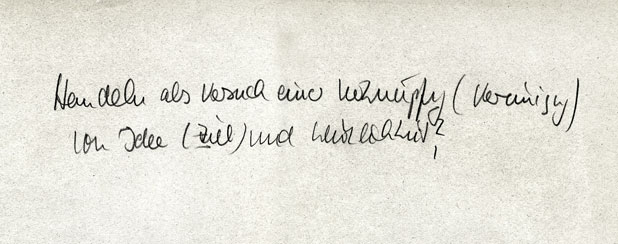 Handeln als Versuch einer Verknüpfg (Vereinigg)
von Idee (Ziel) und Wirklichkeit?